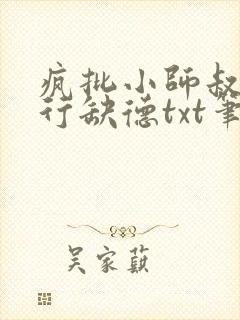 疯批小師叔
行缺德txt筆
吴家蓺